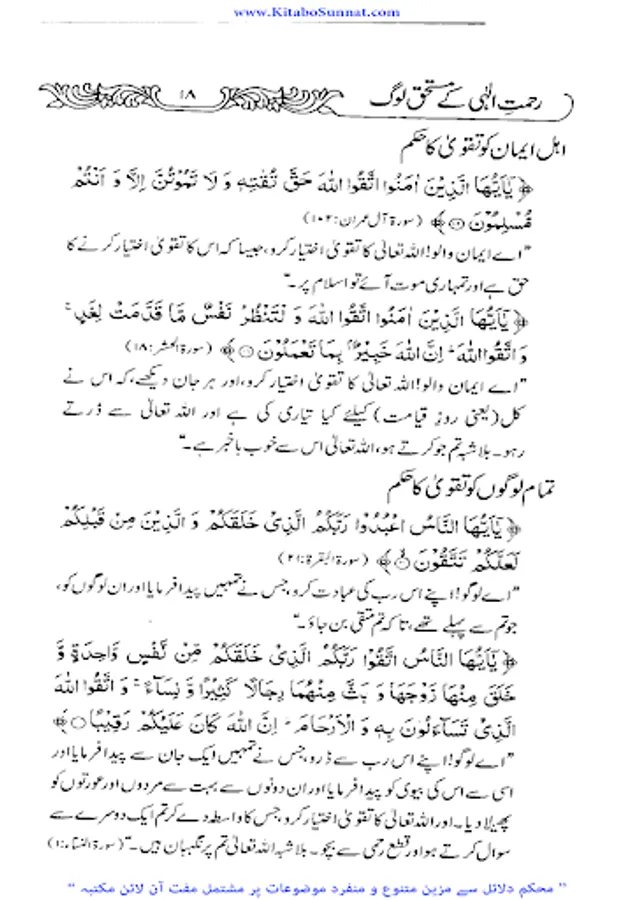 www.KitaboSunnat.com
رحمتِ الٰہی کے مستحق لوگ ۱۸
اہل ایمان کو تقویٰ کا حکم
﴿ يٰٓاَيُّهَا الَّذِيْنَ اٰمَنُوا اتَّقُوا اللّٰهَ حَقَّ تُقٰتِهٖ وَ لَا تَمُوْتُنَّ اِلَّا وَ اَنْتُمْ
مُّسْلِمُوْنَ ﴾ (سورۃ آل عمران:۱۰۲)
”اے ایمان والو! اللہ تعالیٰ کا تقویٰ اختیار کرو، جیسا کہ اس کا تقویٰ اختیار کرنے کا
حق ہے اور تمہاری موت آئے تو اسلام پر۔“
﴿ يٰٓاَيُّهَا الَّذِيْنَ اٰمَنُوا اتَّقُوا اللّٰهَ وَ لْتَنْظُرْ نَفْسٌ مَّا قَدَّمَتْ لِغَدٍ ۚ
وَ اتَّقُوا اللّٰهَ ؕ اِنَّ اللّٰهَ خَبِيْرٌۢ بِمَا تَعْمَلُوْنَ ﴾ (سورۃ الحشر:۱۸)
”اے ایمان والو! اللہ تعالیٰ کا تقویٰ اختیار کرو، اور ہر جان دیکھے، کہ اس نے
کل (یعنی روز قیامت) کیلئے کیا تیاری کی ہے اور اللہ تعالیٰ سے ڈرتے
رہو۔ بلاشبہ تم جو کرتے ہو، اللہ تعالیٰ اس سے خوب باخبر ہے۔“
تمام لوگوں کو تقویٰ کا حکم
﴿ يٰٓاَيُّهَا النَّاسُ اعْبُدُوْا رَبَّكُمُ الَّذِيْ خَلَقَكُمْ وَ الَّذِيْنَ مِنْ قَبْلِكُمْ
لَعَلَّكُمْ تَتَّقُوْنَ ﴾ (سورۃ البقرۃ:۲۱)
”اے لوگو! اپنے اس رب کی عبادت کرو، جس نے تمہیں پیدا فرمایا اور ان لوگوں کو،
جو تم سے پہلے تھے، تاکہ تم متقی بن جاؤ۔“
﴿ يٰٓاَيُّهَا النَّاسُ اتَّقُوْا رَبَّكُمُ الَّذِيْ خَلَقَكُمْ مِّنْ نَّفْسٍ وَّاحِدَةٍ وَّ
خَلَقَ مِنْهَا زَوْجَهَا وَ بَثَّ مِنْهُمَا رِجَالًا كَثِيْرًا وَّ نِسَآءً ۚ وَ اتَّقُوا اللّٰهَ
الَّذِيْ تَسَآءَلُوْنَ بِهٖ وَ الْاَرْحَامَ ؕ اِنَّ اللّٰهَ كَانَ عَلَيْكُمْ رَقِيْبًا ﴾
”اے لوگو! اپنے اس رب سے ڈرو، جس نے تمہیں ایک جان سے پیدا فرمایا اور
اسی سے اس کی بیوی کو پیدا فرمایا اور ان دونوں سے بہت سے مردوں اور عورتوں کو
پھیلا دیا۔ اور اللہ تعالیٰ کا تقویٰ اختیار کرو، جس کا واسطہ دے کر تم ایک دوسرے سے
سوال کرتے ہو اور قطع رحمی سے بچو۔ بلاشبہ اللہ تعالیٰ تم پر نگہبان ہیں۔“ (سورۃ النساء:۱)
”محکم دلائل سے مزین متنوع و منفرد موضوعات پر مشتمل مفت آن لائن مکتبہ“